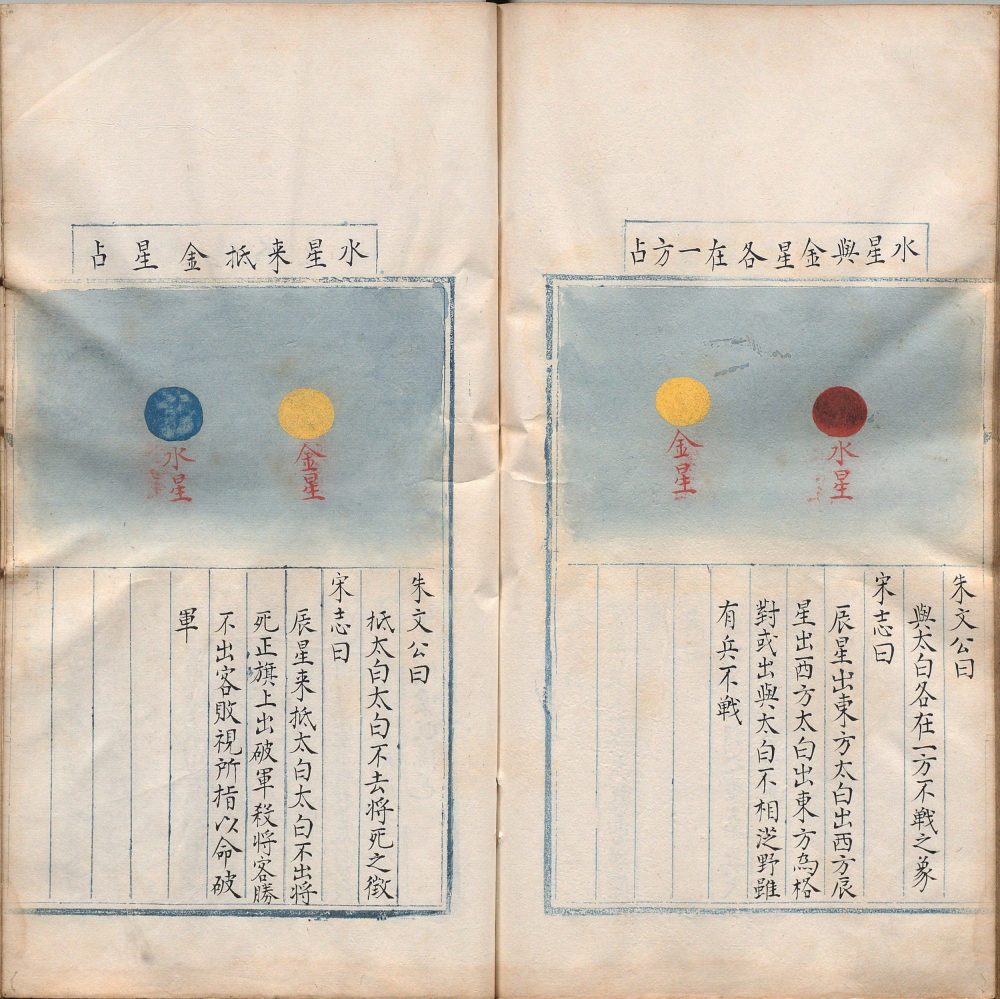 水星與金星各在一方占
水星
金星
朱文公曰
與太白各在一方不戰之象
宋志曰
辰星出東方太白出西方辰
星出西方太白出東方為格
對或出與太白不相從野雖
有兵不戰
水星来抵金星占
金星
水星
朱文公曰
抵太白太白不去将死之徵
宋志曰
辰星来抵太白太白不出将
死正旗上出破軍殺将客勝
不出客敗視所指以命破
軍